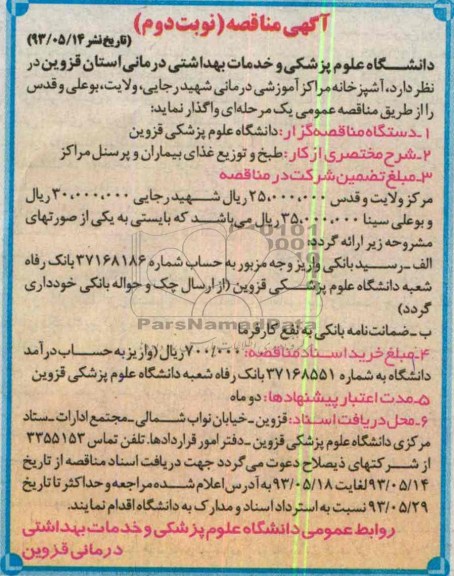 آگهی مناقصه (نوبت دوم)
(تاریخ نشر ۹۳/۰۵/۱۴)
دانشگاه علوم پزشکی و خدمات بهداشتی درمانی استان قزوین در
نظر دارد، آشپزخانه مراکز آموزشی درمانی شهید رجایی، ولایت، بوعلی و قدس
را از طریق مناقصه عمومی یک مرحله‌ای واگذار نماید:
۱ـ دستگاه مناقصه‌گزار: دانشگاه علوم پزشکی قزوین
۲ـ شرح مختصری از کار: طبخ و توزیع غذای بیماران و پرسنل مراکز
۳ـ مبلغ تضمین شرکت در مناقصه
مرکز ولایت و قدس ۲۵۰،۰۰۰،۰۰۰ ریال شهید رجایی ۳۰۰،۰۰۰،۰۰۰ ریال
و بوعلی سینا ۳۵۰،۰۰۰،۰۰۰ ریال می‌باشد که بایستی به یکی از صورتهای
مشروحه زیر ارائه گردد:
الف ـ رسید بانکی واریز وجه مزبور به حساب شماره ۳۷۱۶۸۱۸۶ بانک رفاه
شعبه دانشگاه علوم پزشکی قزوین (از ارسال چک و حواله بانکی خودداری
گردد)
ب ـ ضمانت نامه بانکی به نفع کارفرما
ParsNamadData
۴ـ مبلغ خرید اسناد مناقصه: ۷۰۰/۰۰۰ ریال (واریز به حساب درآمد
دانشگاه به شماره ۳۷۱۶۸۵۵۱ بانک رفاه شعبه دانشگاه علوم پزشکی قزوین
۵ـ مدت اعتبار پیشنهادها: دو ماه
۶ـ محل دریافت اسناد: قزوین ـ خیابان نواب شمالی ـ مجتمع ادارات ـ ستاد
مرکزی دانشگاه علوم پزشکی قزوین ـ دفتر امور قراردادها. تلفن تماس ۳۳۵۵۱۵۳
از شرکتهای ذیصلاح دعوت می‌گردد جهت دریافت اسناد مناقصه از تاریخ
۹۳/۰۵/۱۴ لغایت ۹۳/۰۵/۱۸ به آدرس اعلام شده مراجعه و حداکثر تا تاریخ
۹۳/۰۵/۲۹ نسبت به استرداد اسناد و مدارک به دانشگاه اقدام نمایند.
روابط عمومی دانشگاه علوم پزشکی و خدمات بهداشتی
درمانی قزوین